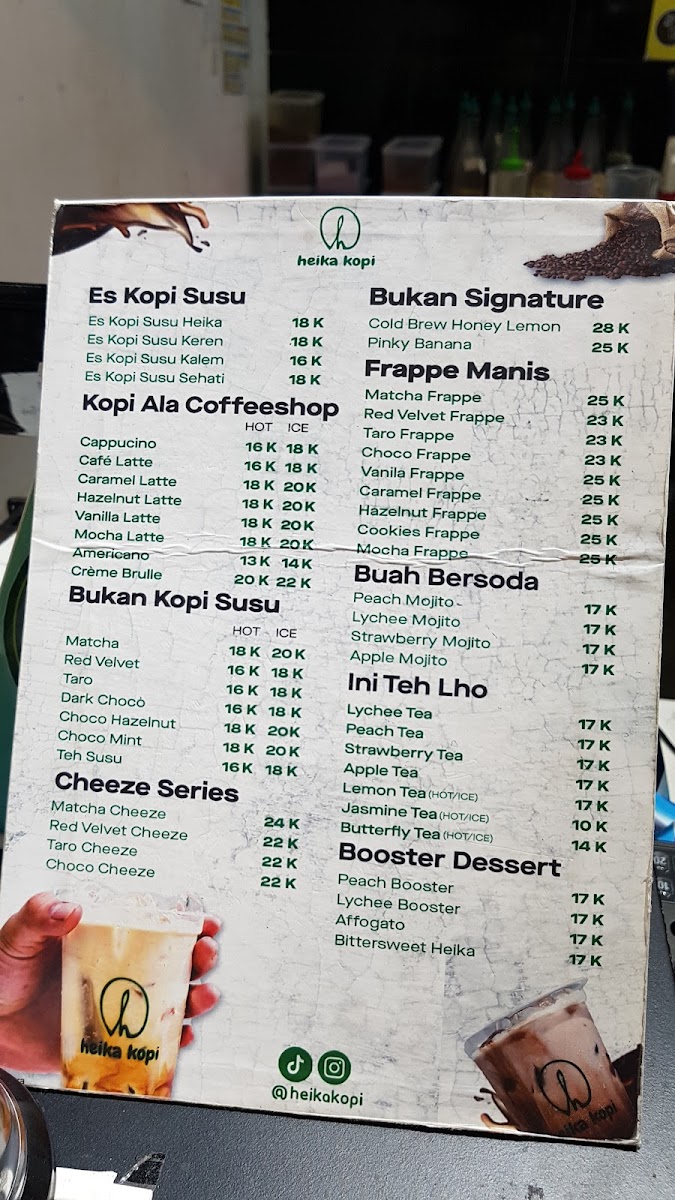 heika kopi
Es Kopi Susu
Es Kopi Susu Heika 18 K
Es Kopi Susu Keren 18 K
Es Kopi Susu Kalem 16 K
Es Kopi Susu Sehati 18 K
Kopi Ala Coffeeshop
HOT ICE
Cappucino 16 K 18 K
Café Latte 16 K 18 K
Caramel Latte 18 K 20 K
Hazelnut Latte 18 K 20 K
Vanilla Latte 18 K 20 K
Mocha Latte 18 K 20 K
Americano 13 K 14 K
Crème Brulle 20 K 22 K
Bukan Kopi Susu
HOT ICE
Matcha 18 K 20 K
Red Velvet 16 K 18 K
Taro 16 K 18 K
Dark Choco 16 K 18 K
Choco Hazelnut 18 K 20K
Choco Mint 18 K 20 K
Teh Susu 16 K 18 K
Cheeze Series
Matcha Cheeze 24 K
Red Velvet Cheeze 22 K
Taro Cheeze 22 K
Choco Cheeze 22 K
Bukan Signature
Cold Brew Honey Lemon 28 K
Pinky Banana 25 K
Frappe Manis
Matcha Frappe 25 K
Red Velvet Frappe 23 K
Taro Frappe 23 K
Choco Frappe 23 K
Vanila Frappe 25 K
Caramel Frappe 25 K
Hazelnut Frappe 25 K
Cookies Frappe 25 K
Mocha Frappe 25 K
Buah Bersoda
Peach Mojito 17 K
Lychee Mojito 17 K
Strawberry Mojito 17 K
Apple Mojito 17 K
Ini Teh Lho
Lychee Tea 17 K
Peach Tea 17 K
Strawberry Tea 17 K
Apple Tea 17 K
Lemon Tea (HOT/ICE) 17 K
Jasmine Tea (HOT/ICE) 10 K
Butterfly Tea (HOT/ICE) 14 K
Booster Dessert
Peach Booster 17 K
Lychee Booster 17 K
Affogato 17 K
Bittersweet Heika 17 K
heika kopi
heika kopi
@heikakopi